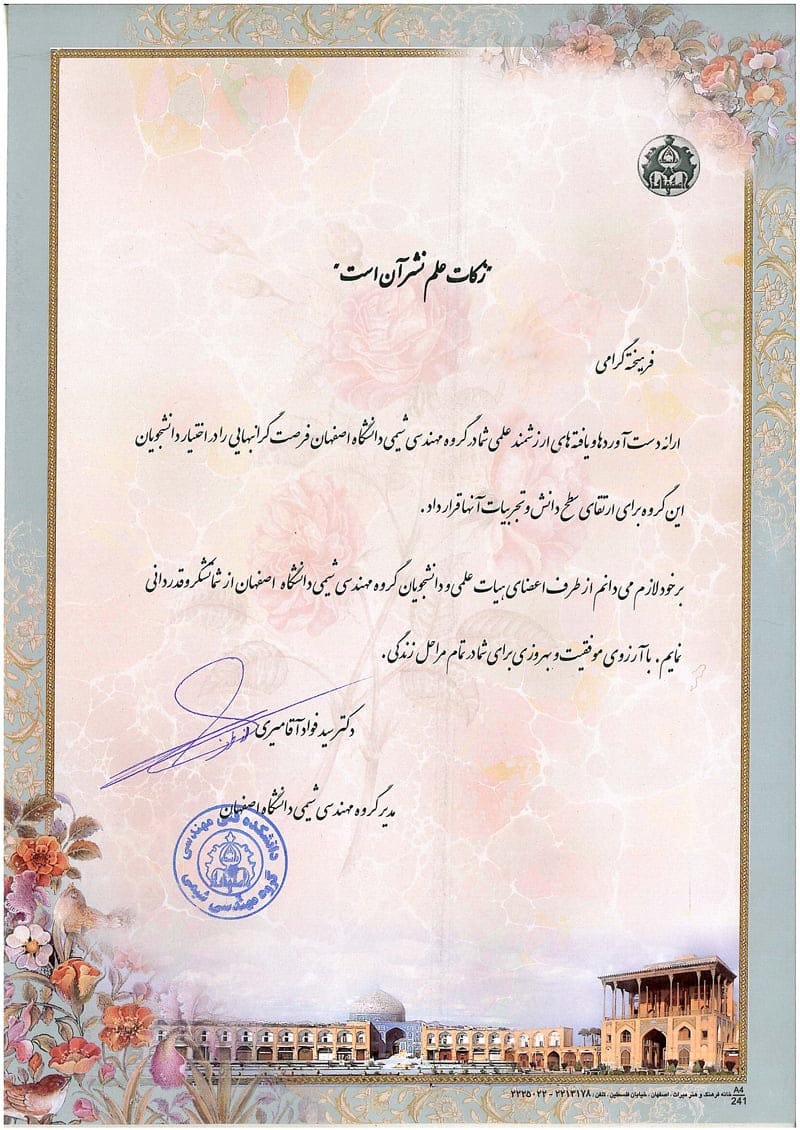 "زکات علم نشر آن است"
فرهیختهٔ گرامی
ارائه دست آوردها و یافته های ارزشمند علمی شما در گروه مهندسی شیمی دانشگاه اصفهان فرصت گرانبهایی را در اختیار دانشجویان
این گروه برای ارتقای سطح دانش و تجربیات آنها قرار داد.
بر خود لازم می دانم از طرف اعضای هیات علمی و دانشجویان گروه مهندسی شیمی دانشگاه اصفهان از شما تشکر و قدردانی
نمایم. با آرزوی موفقیت و بهروزی برای شما در تمام مراحل زندگی.
دکتر سید فواد آقامیری
مدیر گروه مهندسی شیمی دانشگاه اصفهان
دانشکده فنی مهندسی
گروه مهندسی شیمی
خانه فرهنگ و هنر میراث، اصفهان، خیابان فلسطین، تلفن: ۲۲۱۳۱۷۸ - ۲۲۲۵۰۲۲
A4
241